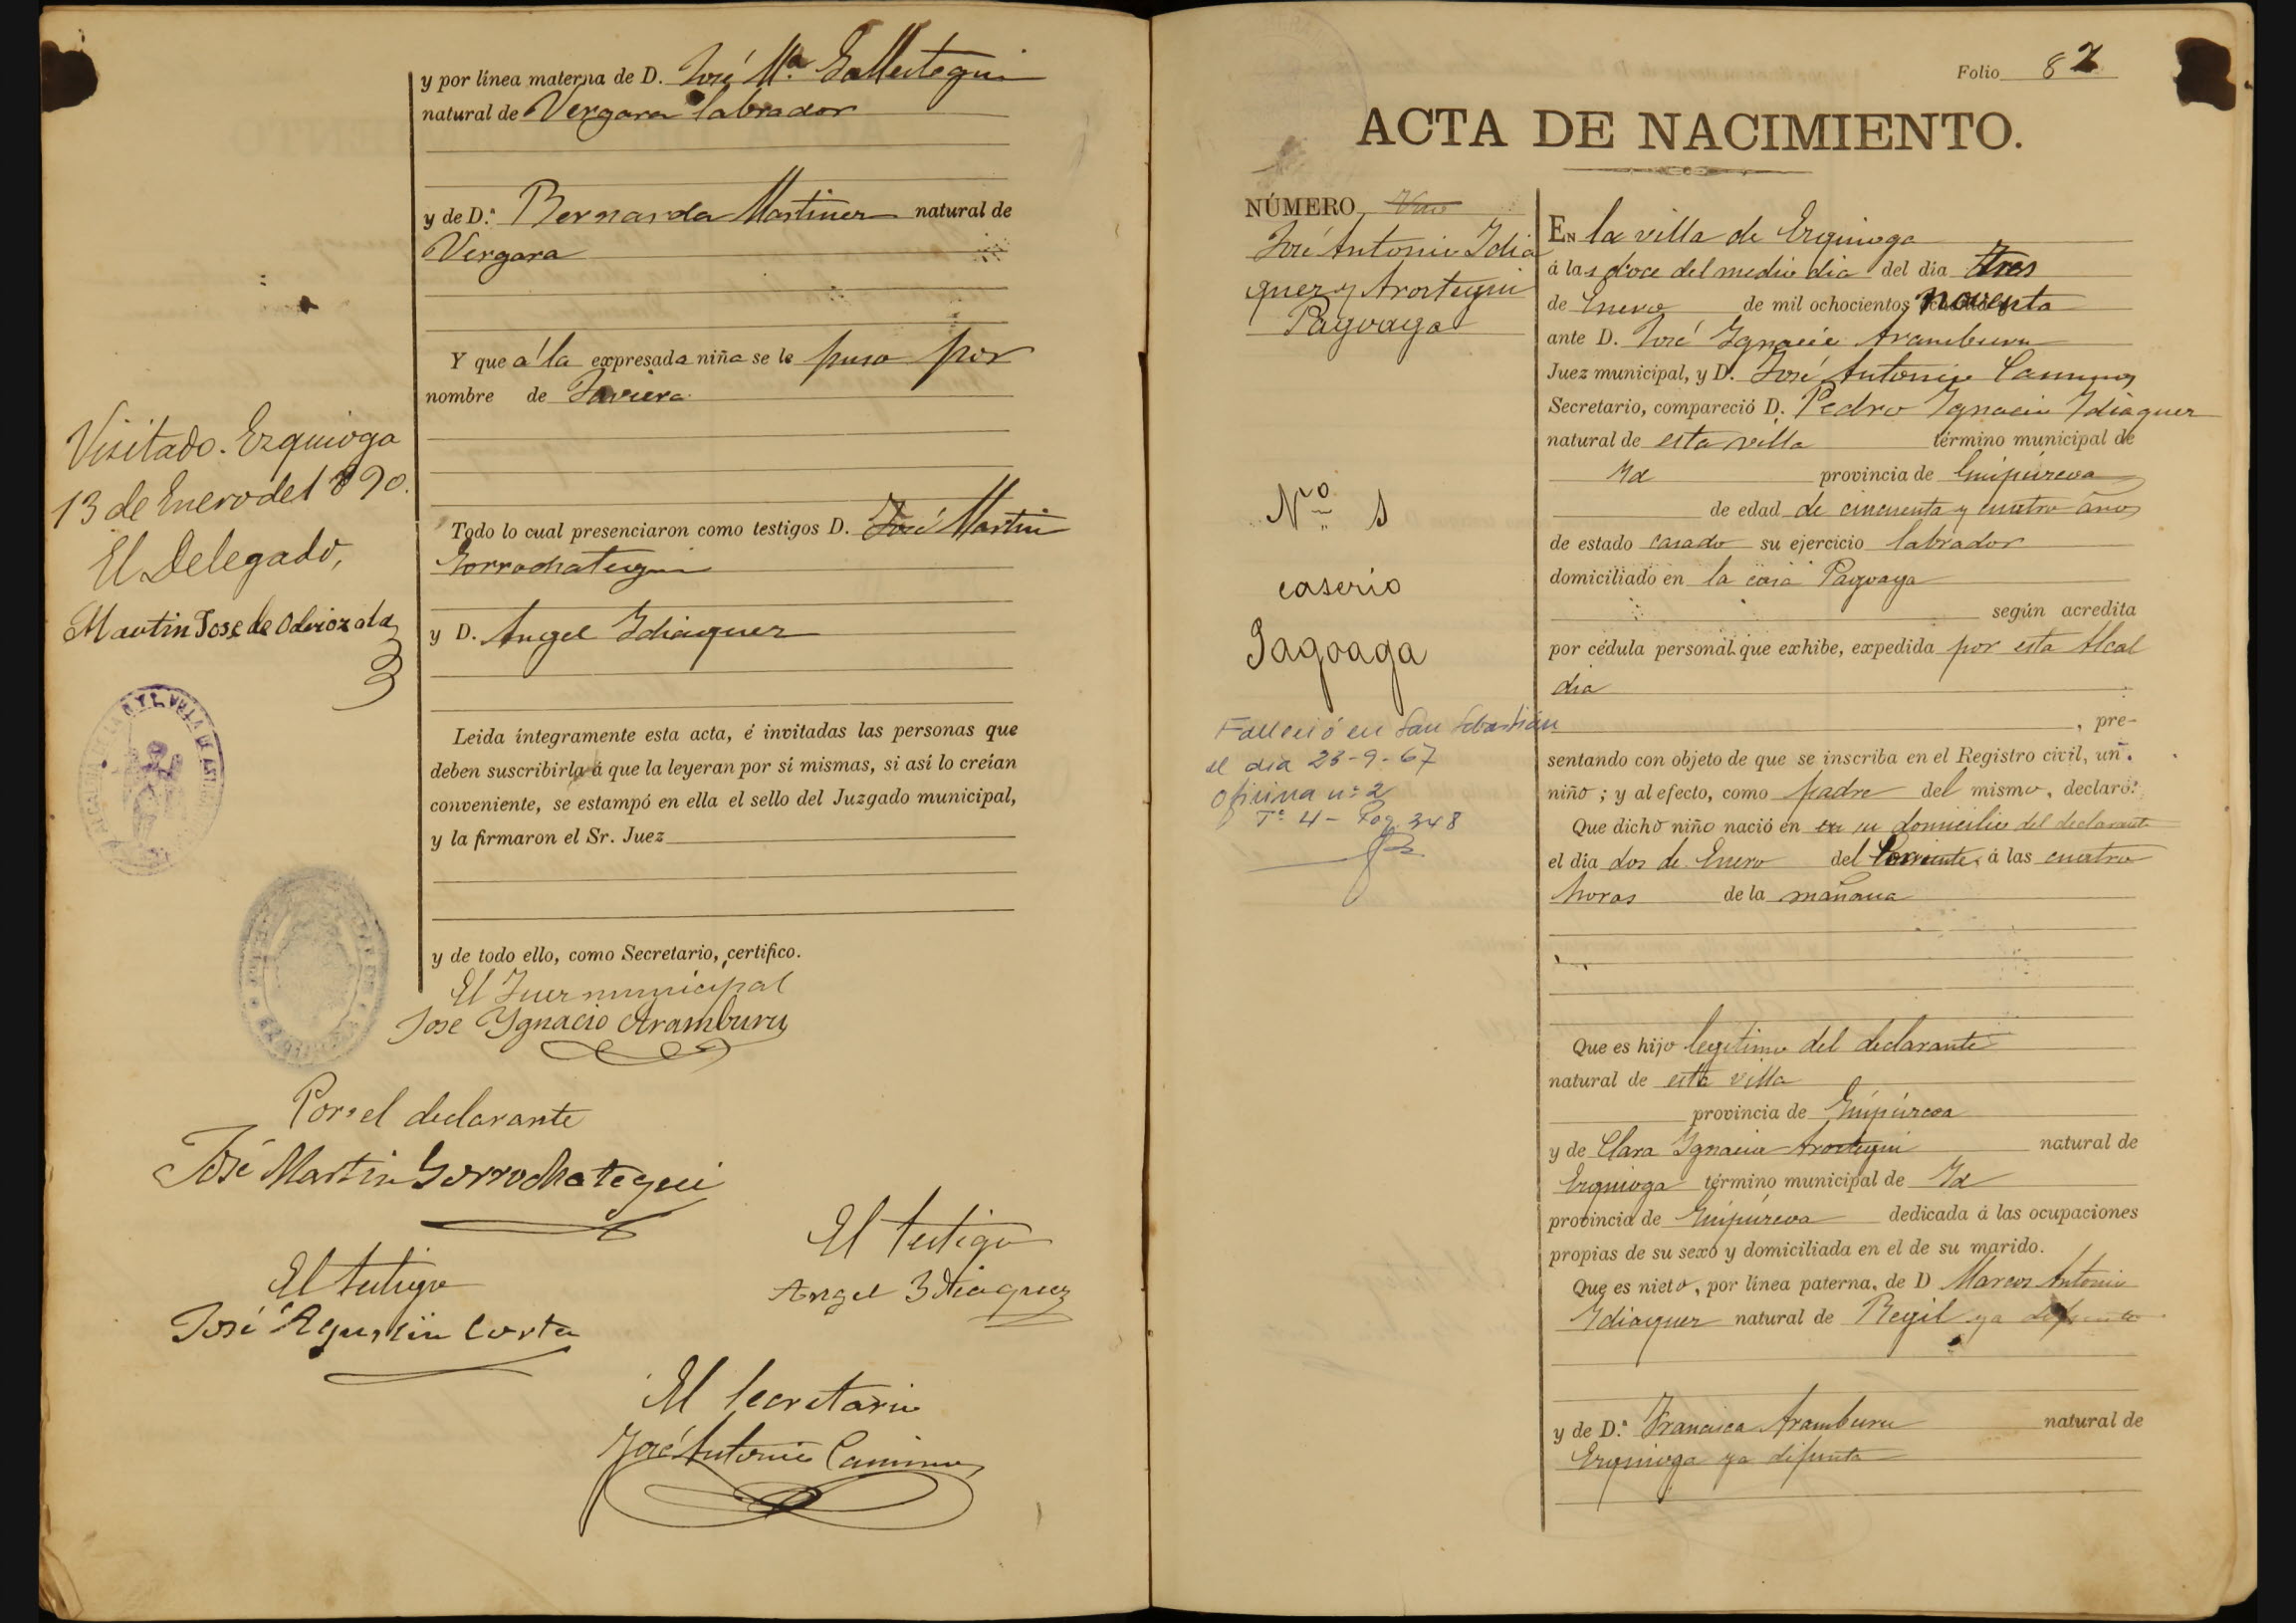 y por línea materna de D. José Mª Gallastegui
natural de Vergara labrador
y de D.ª Bernarda Martinez natural de
Vergara
Y que á la expresada niña se le puso por
nombre de Javiera
Visitado. Ezquioga
13 de Enero de 1890.
El Delegado,
Martin Jose de Odriozola
Todo lo cual presenciaron como testigos D. José Martin
Gorrochategui
y D. Angel Idiaquez
Leida íntegramente esta acta, é invitadas las personas que
deben suscribirla á que la leyeran por sí mismas, si así lo creían
conveniente, se estampó en ella el sello del Juzgado municipal,
y la firmaron el Sr. Juez
y de todo ello, como Secretario, certifico.
El Juez municipal
Jose Ygnacio Aramburu
Por el declarante
José Martin Gorrochategui
El testigo
Angel Idiaquez
El testigo
José Agustin Corta
El Secretario
José Antonio Caminos
Folio 82
ACTA DE NACIMIENTO.
NÚMERO Uno
José Antonio Idia
quez y Arostegui
Pagoaga
Nº 1
caserio
Pagoaga
Falleció en San Sebastián
el dia 23-9-67
Oficina nº 2
Tº 4 - Pag. 348
En la villa de Ezquioga
á las doce del medio dia del dia tres
de Enero de mil ochocientos noventa
ante D. José Ygnacio Aramburu
Juez municipal, y D. José Antonio Caminos
Secretario, compareció D. Pedro Ygnacio Idiaquez
natural de esta villa término municipal de
Id provincia de Guipúzcoa
de edad de cincuenta y cuatro años
de estado casado su ejercicio labrador
domiciliado en la casa Pagoaga
según acredita
por cédula personal que exhibe, expedida por esta Alcal
dia
, pre-
sentando con objeto de que se inscriba en el Registro civil, un
niño; y al efecto, como padre del mismo, declaró:
Que dicho niño nació en en su domicilio del declarante
el dia dos de Enero del Corriente, á las cuatro
horas de la mañana
Que es hijo legitimo del declarante
natural de esta villa
provincia de Guipúzcoa
y de Clara Ygnacia Arostegui natural de
Ezquioga término municipal de Id
provincia de Guipúzcoa dedicada á las ocupaciones
propias de su sexo y domiciliada en el de su marido.
Que es nieto, por línea paterna, de D Marcos Antonio
Idiaquez natural de Regil ya difunto
y de D.ª Francisca Aramburu natural de
Ezquioga ya difunta